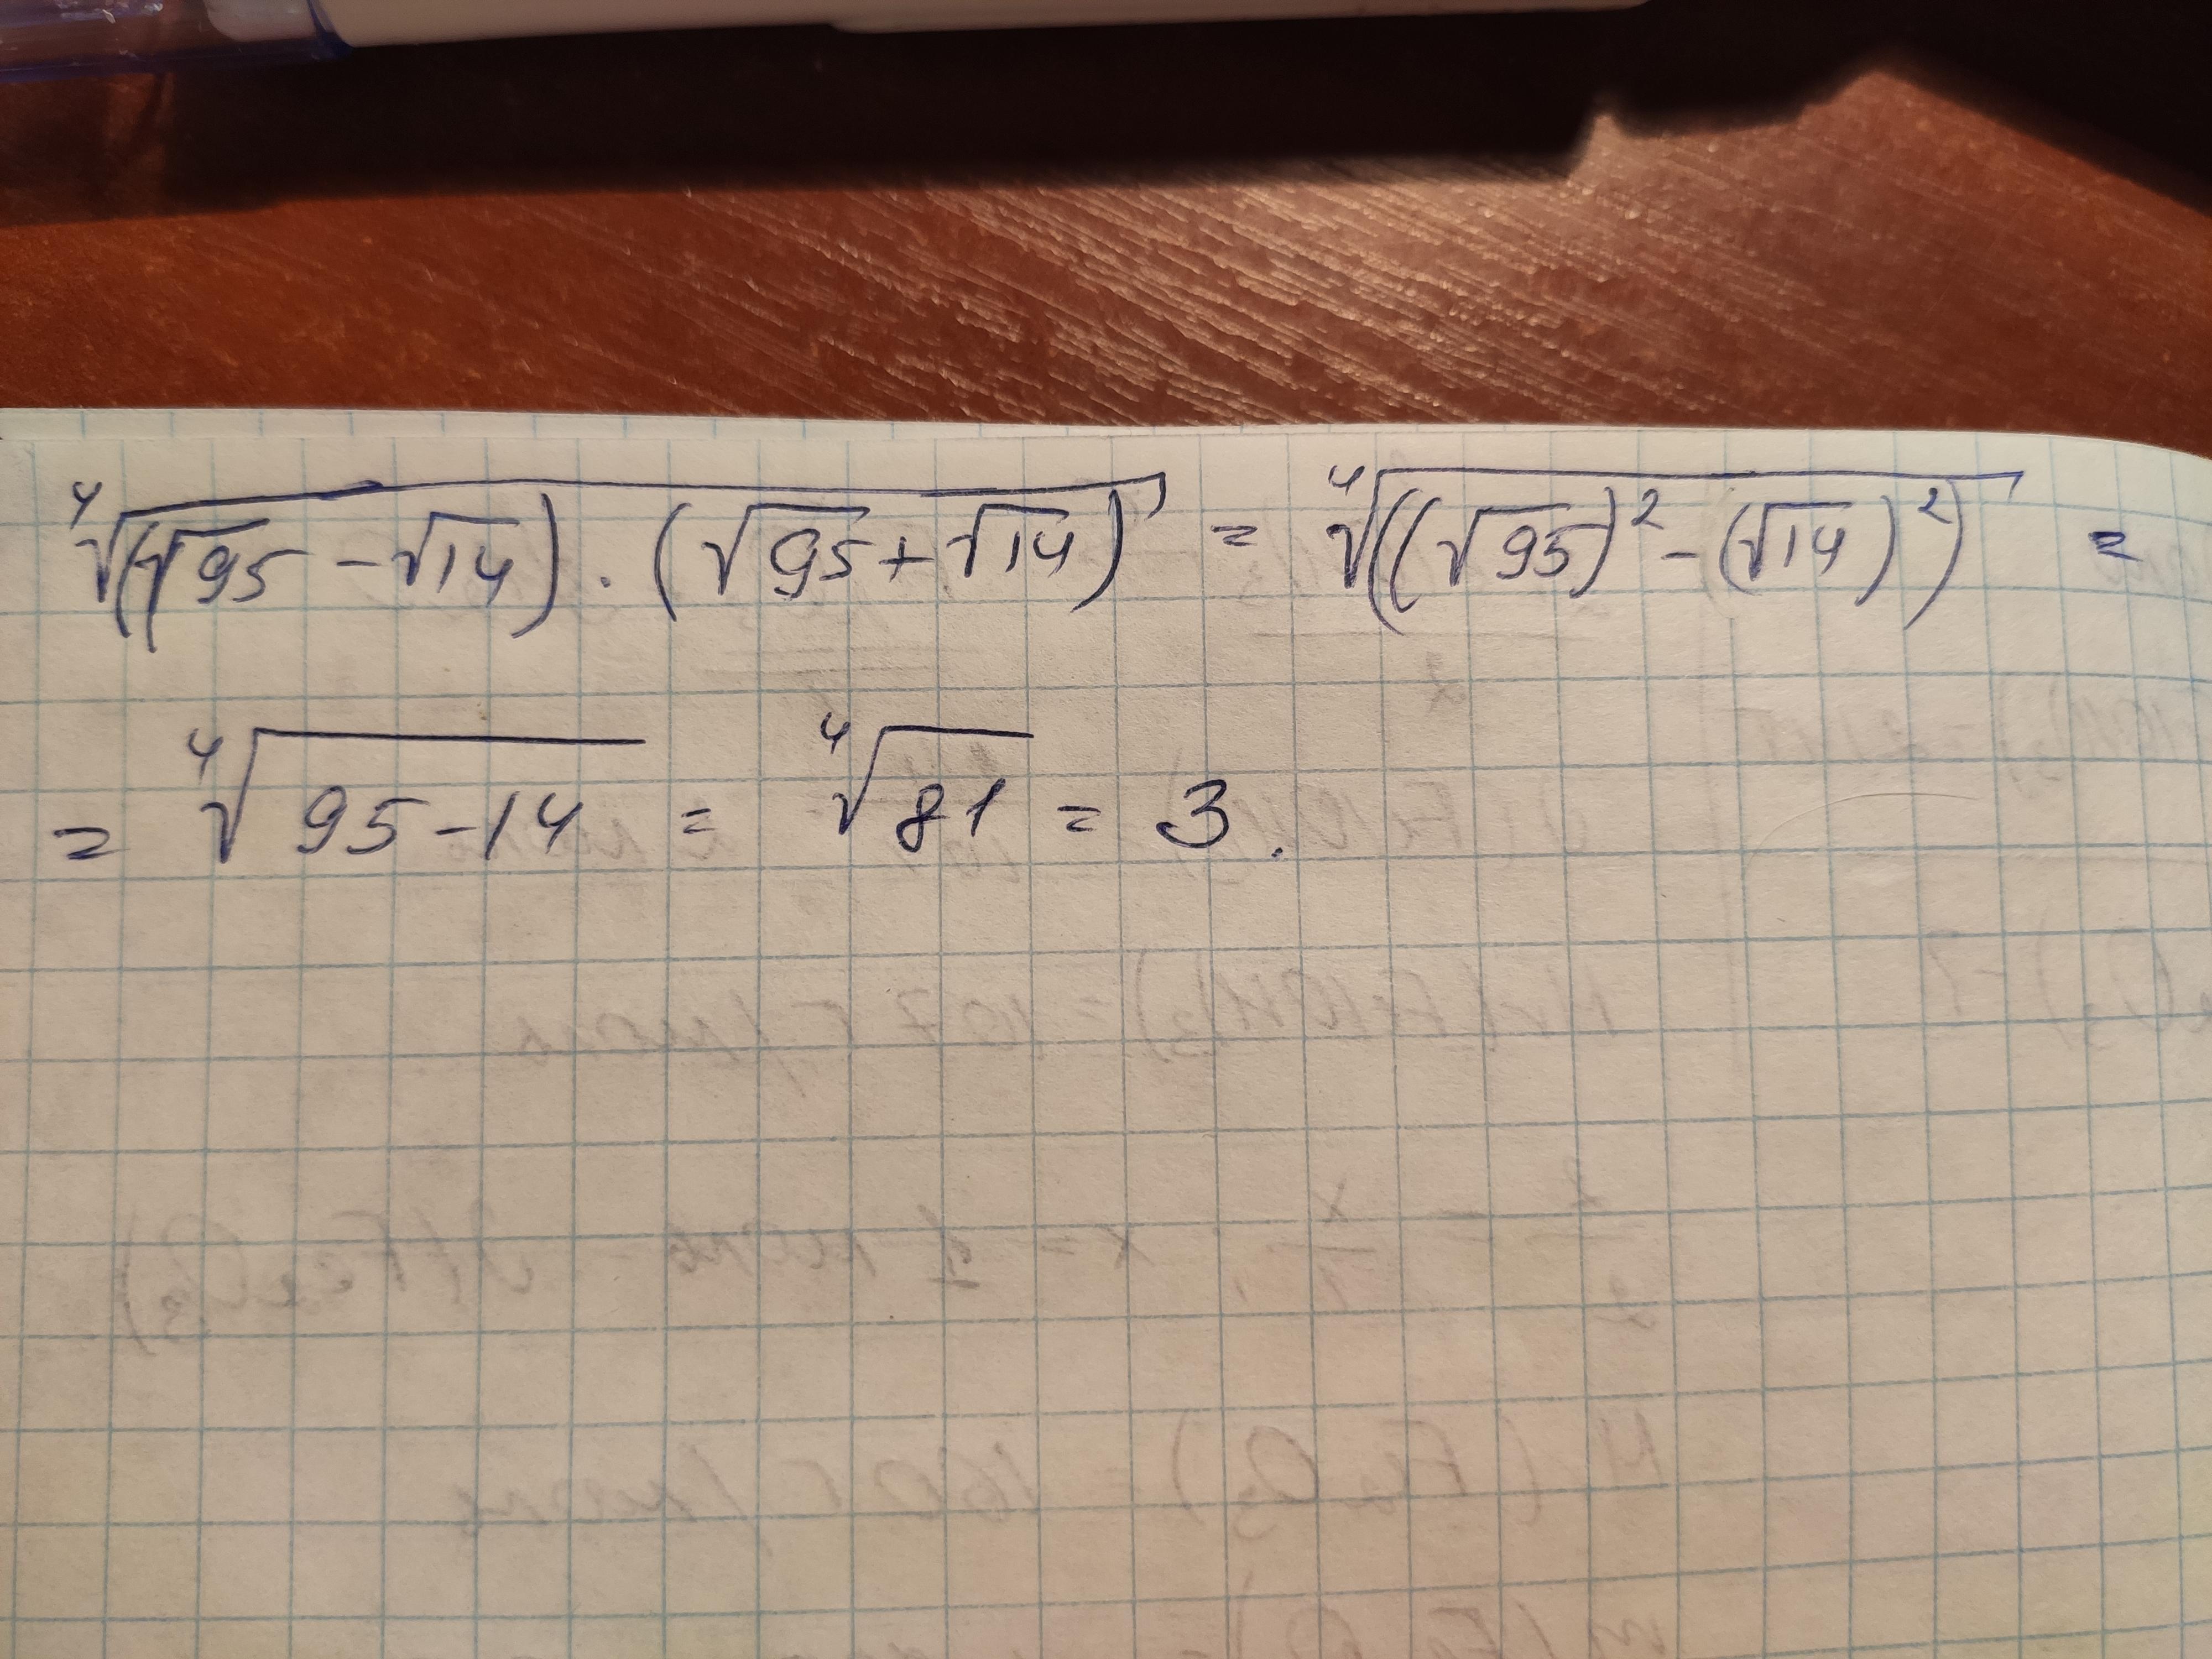 ⁴√((√95 - √14) · (√95 + √14)) = ⁴√((√95)² - (√14)²) =
= ⁴√(95 - 14) = ⁴√81 = 3.